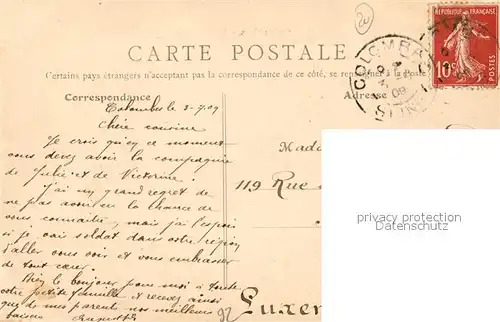 20
CARTE POSTALE
Certains pays étrangers n'acceptant pas la correspondance de ce côté, se renseigner à la Poste
Correspondance
Adresse
RÉPUBLIQUE FRANÇAISE
10c
POSTES
COLOMBES
SEINE
Colombes le 3-7-09
Chère cousine
Je crois qu'en ce moment
vous devez avoir la compagnie
de Juliette de Victorine.
J'ai un grand regret de
ne pas avoir eu la chance de
vous connaître, mais j'ai l'espoir
si je vais soldat dans votre région
d'aller vous voir et vous embrasser
de tout cœur.
Bien le bonjour pour moi à toute
votre petite famille et recevez ainsi
que de mes parents nos meilleurs
baisers
Mada
119 Rue
Luxem
92
privacy protection
Datenschutz